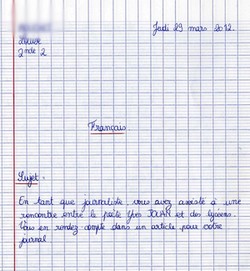 Jeudi 29 mars 2012.
2nde 2
Français
Sujet :
En tant que journaliste, vous avez assisté à une
rencontre entre le poète Yves JOUAN et des lycéens.
Vous en rendez compte dans un article pour votre
journal